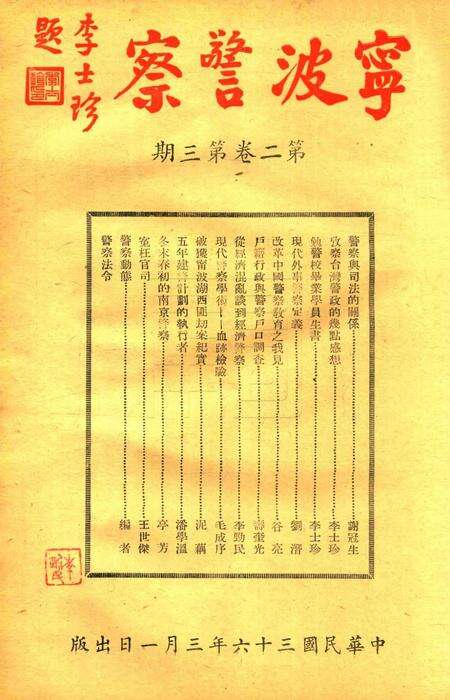 寧波警察
李士珍題
第二卷第三期
警察與司法的關係 謝冠生
攷察台灣警政的幾點感想 李士珍
勉警校畢業學員生書 李士珍
現代外事警察定義 劉濳
改革中國警察教育之我見 谷亮
戶籍行政與警察戶口調查 壽奎光
從經濟混亂談到經濟警察 李勁民
現代警察學術——血跡檢驗 毛成序
破獲甯波湖西匪劫案紀實 泥藕
五年建警計劃的執行者 潘學溫
冬末春初的南京警察 亭芳
室枉官司 王世傑
警察動態 編者
警察法令
中華民國三十六年三月一日出版